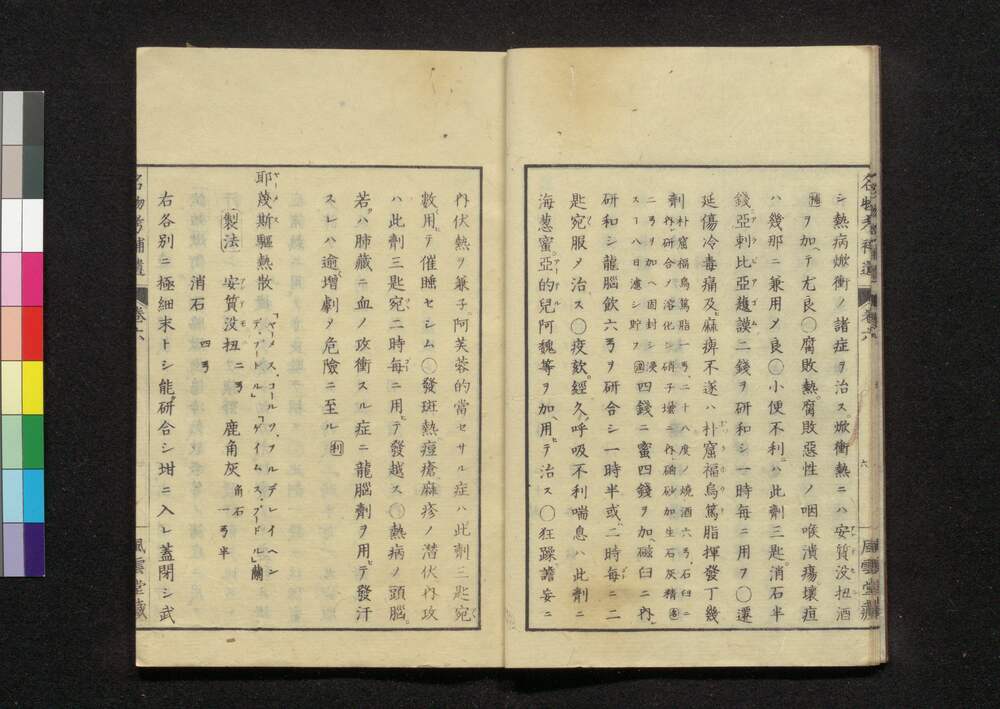 シ熱病焮衝ノ諸症ヲ治ス焮衝熱ニハ安質没扭酒
ヲ加ヘテ尤良〇腐敗熱腐敗惡性ノ咽喉潰瘍壞疽
ハ幾那ニ兼用メ良〇小便不利ハ此劑三匙消石半
錢亞剌比亞護謨二錢ヲ研和シ一時每ニ用ヲ〇遷
延傷冷毒痛及麻痺不遂ハ朴窟福烏篤脂揮發丁幾
劑朴窟福烏篤脂一弓二十八度ノ燒酒六弓石臼ニ
内研合メ溶化シ硝子壜ニ内硇砂加生石灰精
二弓ヲ加ヘ固封シ浸
スヿ八日濾シ貯フ
四錢ニ蜜四錢ヲ加磁臼ニ内
研和シ龍腦飲六弓ヲ研合シ一時半或二時每ニ二
匙宛服メ治ス〇疫欬經久呼吸不利喘息ハ此劑ニ
海葱蜜亞的兒阿魏等ヲ加ヘ用テ治ス〇狂躁譫妄ニ
内伏熱ヲ兼子阿芙蓉的當セサル症ハ此劑三匙宛
數用テ催睡セシム〇發斑熱痘瘡麻疹ノ潜伏内攻
ハ此劑三匙宛二時每ニ用テ發越ス〇熱病ノ頭腦
若ハ肺藏ニ血ノ攻衝スル症ニ龍腦劑ヲ用テ發汗
スレハ逾增劇メ危險ニ至ル 利
耶蔑斯驅熱散
「ヤーメス、コールツ、フルデレイヘン
デ、プードル」「ゲイムス、プードル」蘭
製法 安質没扭 二弓 鹿角灰 角石 一弓半
消石 四弓
右各別ニ極細末トシ能研合シ坩ニ入レ蓋閉シ武
名物考補遺 卷六 六 風雲堂藏